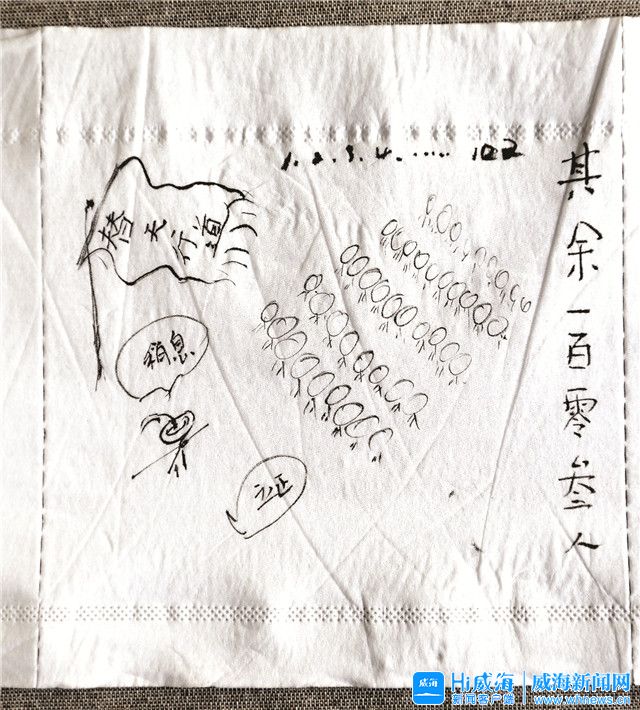 1. 2. 3. 4. ...... 102
替天行道
稍息
立正
其余一百零叁人
威海
Hi威海
新闻客户端
威海新闻网
www.whnews.cn